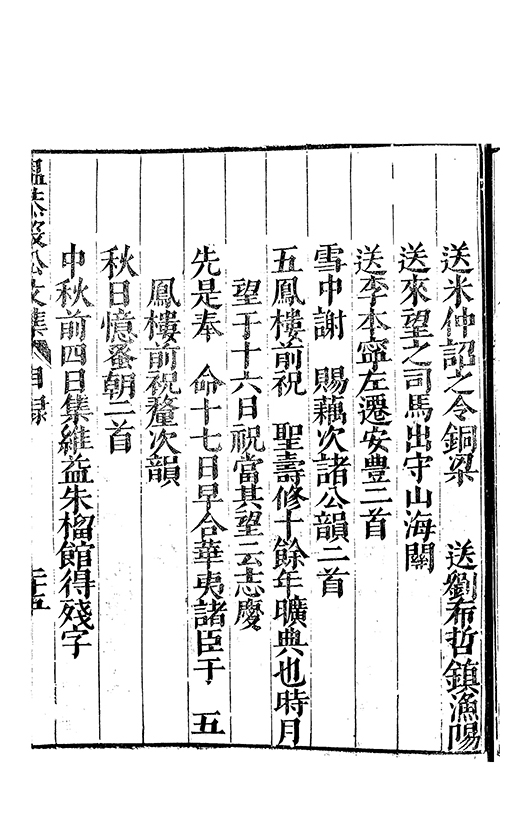 送米仲詔之令銅梁　送劉布哲鎮漁陽
送來望之司馬出守山海關
送李本寧左遷安豊二首
雪中謝　賜藕次諸公韻二首
五鳳樓前祝　聖壽修十餘年曠典也時月
望于十六日祝當其望云志慶
先是奉　命十七日早合華夷諸臣于　五
鳳樓前祝釐次韻
秋日憶蚤朝二首
中秋前四日集維益朱榴館得殘字
公文集　目録　二十五